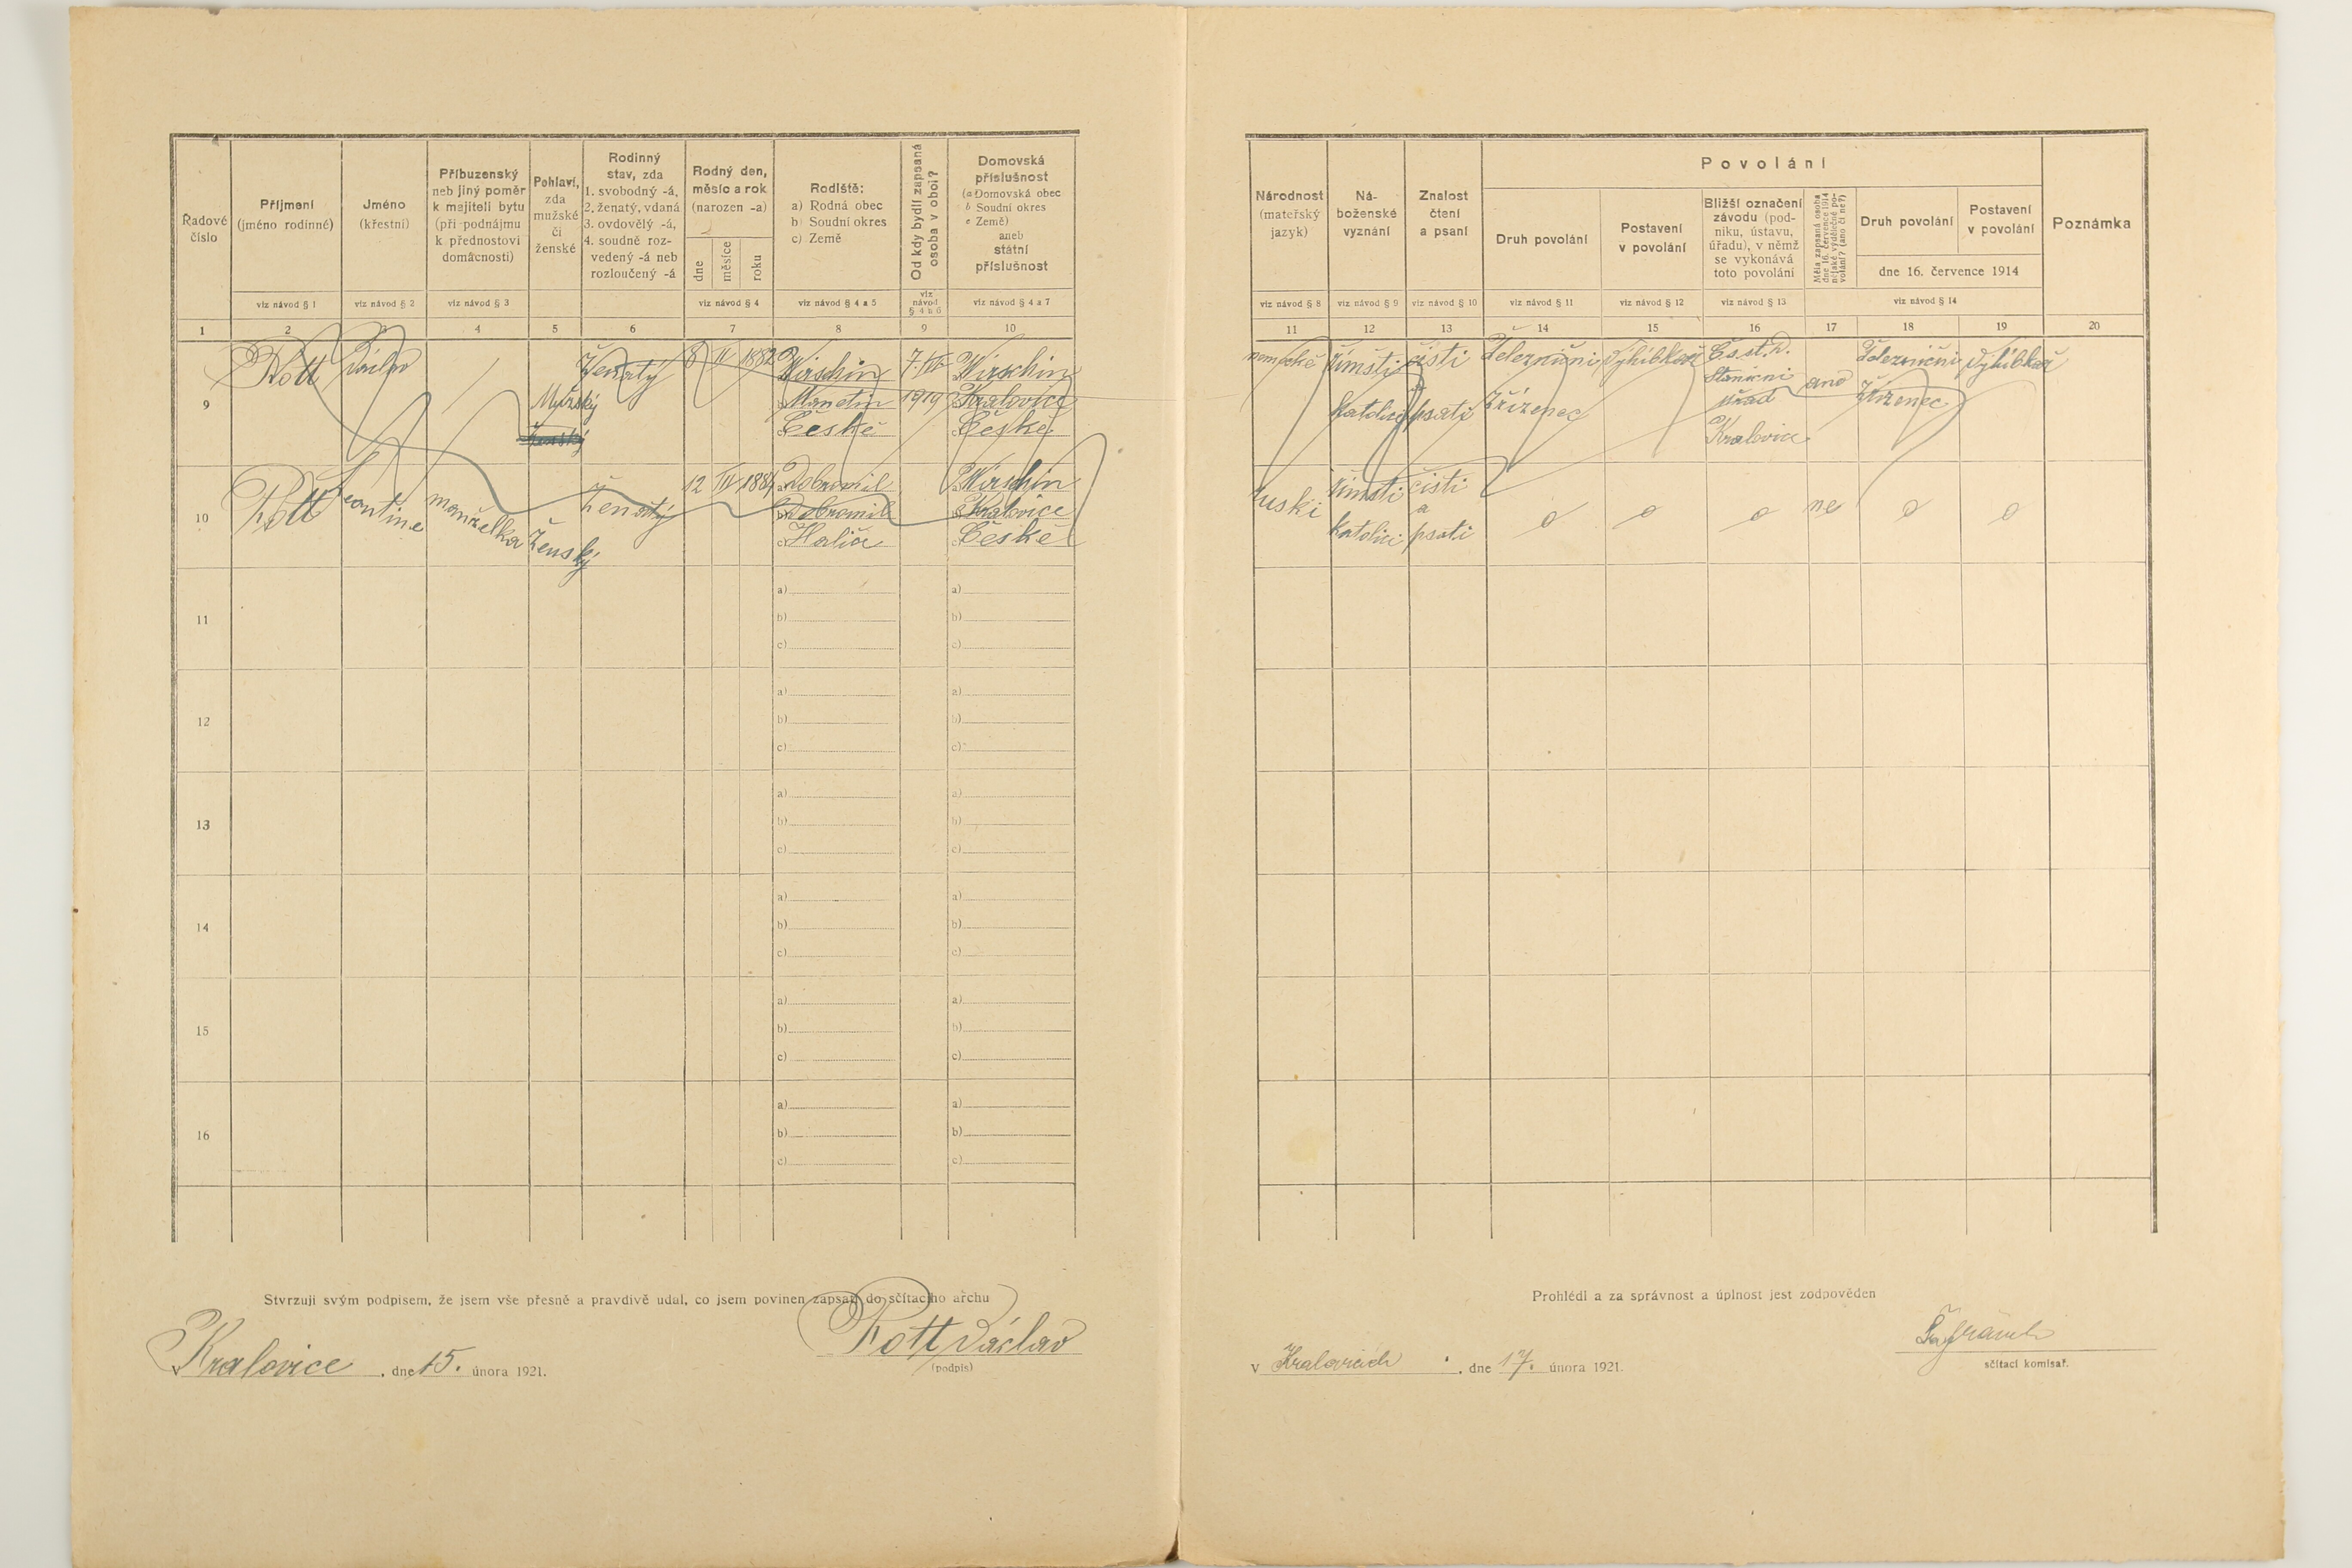 Řadové číslo
Příjmení (jméno rodinné)
Jméno (křestní)
Příbuzenský neb jiný poměr k majiteli bytu (při podnájmu k přednostovi domácnosti)
Pohlaví, zda mužské či ženské
Rodinný stav, zda
1. svobodný -á,
2. ženatý, vdaná
3. ovdovělý -á,
4. soudně rozvedený -á neb rozloučený -á
Rodný den, měsíc a rok (narozen -a)
dne
měsíce
roku
Rodiště:
a) Rodná obec
b) Soudní okres
c) Země
Od kdy bydlí zapsaná osoba v obci?
Domovská příslušnost
(a Domovská obec
b Soudní okres
c Země)
aneb
státní příslušnost
viz návod § 1
viz návod § 2
viz návod § 3
viz návod § 4
viz návod § 4 a 5
viz návod
viz návod § 4 a 7
1 2 3 4 5 6 7 8 9 10
9 Rott Václav
Mužský
Ženský
Ženatý
8 IV 1882
Wirschin
Manetin
České
7.
1919
Wirschin
Kralovice
České
10 Rott Leontine manželka Ženský
Ženatý
12 IV 1884
Dobromil
Dobromil
Halič
Wirschin
Kralovice
České
11 a) a)
b) b)
c) c)
12 a) a)
b) b)
c) c)
13 a) a)
b) b)
c) c)
14 a) a)
b) b)
c) c)
15 a) a)
b) b)
c) c)
16 a) a)
b) b)
c) c)
Stvrzuji svým podpisem, že jsem vše přesně a pravdivě udal, co jsem povinen zapsati do sčítacího archu
Kralovice, dne 15. února 1921.
Rott Václav
(podpis)
Národnost (mateřský jazyk)
Náboženské vyznání
Znalost čtení a psaní
Povolání
Druh povolání
Postavení v povolání
Bližší označení závodu (podniku, ústavu, úřadu), v němž se vykonává toto povolání
Měla zapsaná osoba dne 16. července 1914 nějaké výdělečné povolání? (ano či ne?)
Druh povolání
Postavení v povolání
dne 16. července 1914
Poznámka
viz návod § 8
viz návod § 9
viz návod § 10
viz návod § 11
viz návod § 12
viz návod § 13
viz návod § 14
11 12 13 14 15 16 17 18 19 20
německé
římsti
katolici
čisti
a
psati
Železnični
zřizenec
Vyhibkař
Čs. st. d.
Stanični
uřad
Kralovice
ano
Železnični
zřizenec
Vyhibkař
ruski
římsti
katolici
čisti
a
psati
o o o ne o o
Prohlédl a za správnost a úplnost jest zodpověden
v Kralovicích, dne 17. února 1921.
sčítací komisař.